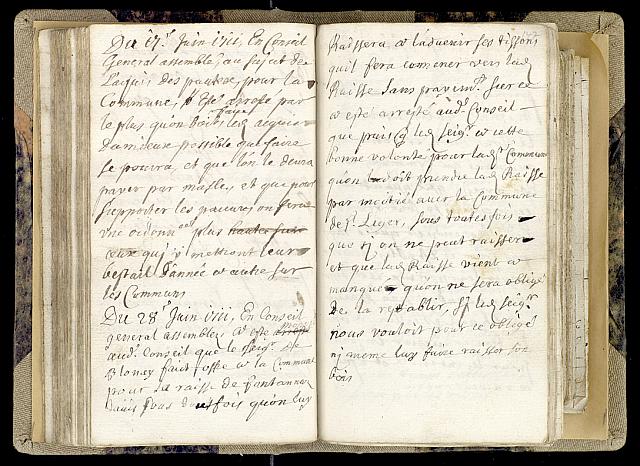 Du 17.e Juin 1711, En Conseil
General assemblé, au sujet de
Laquis Des pautex, pour la
Commune, Est arresté par
le plus qu'on doit faire led. acquis
Damieuse possible que faire
se pourra, et que l'on le devra
payer par masles, et que pour
supporter les pauvres, on fera
une ordonn.ce plus
ceux qui y mettront leur
bestail d'année et autre sur
les Communs
Du 28.e Juin 1711, En Conseil
general assemblé, a esté
aud. Conseil que le seig.r De
Blonay faict offre a la Commune
pour sa raisse de fantanney
daüis sous toutesfois qu'on luy
Raissera a l'advenir ses tissons
quil fera comener vers lad.
Raisse sans payem.t, surce
a esté arresté aud. Conseil
que puis q. led. seig.r a cette
bonne volonté pour lad. Commune
qu'on doit prendre lad. Raisse
par moitié avec la Commune
de S.t Legier, sous toutesfois
que sy on ne peut raisser
et que lad. Raisse vient a
manquer quon ne sera obligé
De la restablir, sy led. seig.r
nous vouloit pour ce obliger
ny meme luy faire raisser son
bois